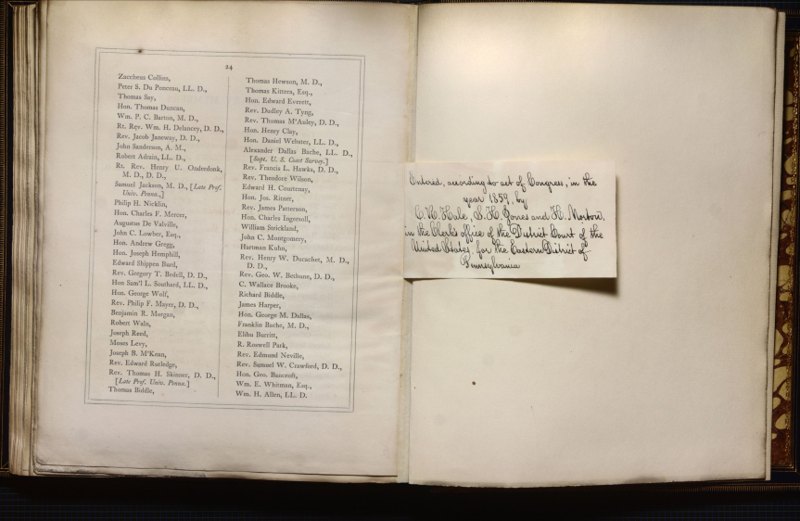 24
Zaccheus Collins,
Peter S. Du Ponceau, LL. D.,
Thomas Say,
Hon. Thomas Duncan,
Wm. P. C. Barton, M. D.,
Rt. Rev. Wm. H. Delancey, D. D.,
Rev. Jacob Janeway, D. D.,
John Sanderson, A. M.,
Robert Adrain, LL. D.,
Rt. Rev. Henry U. Onderdonk,
M. D., D. D.,
Samuel Jackson, M. D., [Late Prof.
Univ. Penna.,]
Philip H. Nicklin,
Hon. Charles F. Mercer,
Augustus De Valville,
John C. Lowber, Esq.,
Hon. Andrew Gregg,
Hon. Joseph Hemphill,
Edward Shippen Burd,
Rev. Gregory T. Bedell, D. D.,
Hon Sam'l L. Southard, LL. D.,
Hon. George Wolf,
Rev. Philip F. Mayer, D. D.,
Benjamin R. Morgan,
Robert Waln,
Joseph Reed,
Moses Levy,
Joseph B. M'Kean,
Rev. Edward Rutledge,
Rev. Thomas H. Skinner, D. D.,
[Late Prof. Univ. Penna.]
Thomas Biddle,
Thomas Hewson, M. D.,
Thomas Kittera, Esq.,
Hon. Edward Everett,
Rev. Dudley A. Tyng,
Rev. Thomas M'Auley, D. D.,
Hon. Henry Clay,
Hon. Daniel Webster, LL. D.,
Alexander Dallas Bache, LL. D.,
[Supt. U. S. Coast Survey.]
Rev. Francis L. Hawks, D. D.,
Rev. Theodore Wilson,
Edward H. Courtenay,
Hon. Jos. Ritner,
Rev. James Patterson,
Hon. Charles Ingersoll,
William Strickland,
John C. Montgomery,
Hartman Kuhn,
Rev. Henry W. Ducachet, M. D.,
D. D.,
Rev. Geo. W. Bethune, D. D.,
C. Wallace Brooke,
Richard Biddle,
James Harper,
Hon. George M. Dallas,
Franklin Bache, M. D.,
Elihu Burritt,
R. Roswell Park,
Rev. Edmund Neville,
Rev. Samuel W. Crawford, D. D.,
Hon. Geo. Bancroft,
Wm. E. Whitman, Esq.,
Wm. H. Allen, LL. D.
Entered, according to act of Congress, in the
year 1859, by
C. R. Hale, S. H. Jones and H. Morton,
in the Clerk's office of the District Court of the
United States, for the Eastern District of
Pennsylvania